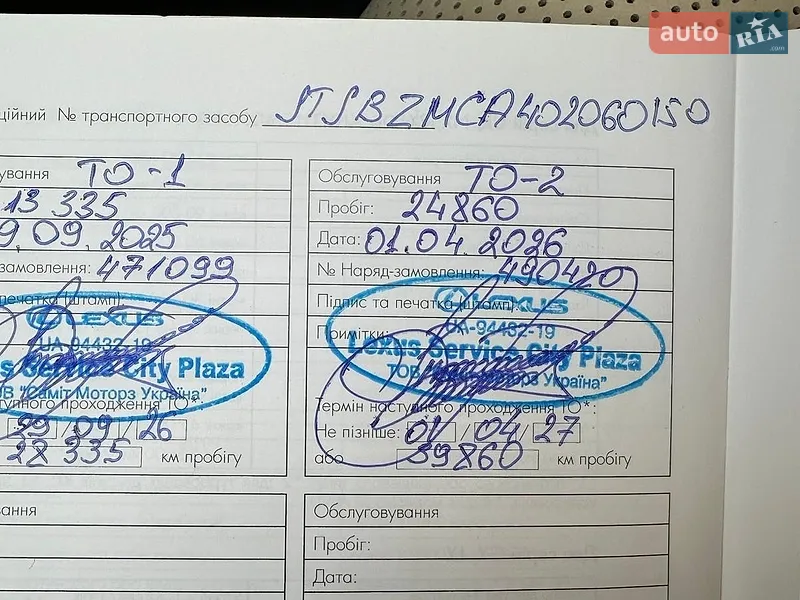 auto RIA .com
ційний № транспортного засобу JTJBZMCA402060150
ування ТО-1
13 335
9.09.2025
замовлення: 471099
печатка (штамп):
LEXUS
UA-94432-19
s Service City Plaza
ОВ "Саміт Моторз Україна"
тупного проходження ТО*:
29/09/26
28 335 км пробігу
Обслуговування ТО-2
Пробіг: 24860
Дата: 01.04.2026
№ Наряд-замовлення: 490420
Підпис та печатка (штамп):
LEXUS
Примітки: UA-94432-19
Lexus Service City Plaza
ТОВ Моторз Україна"
Термін наступного проходження ТО*:
Не пізніше: 01/04/27
або 39860 км пробігу
ання
Обслуговування
Пробіг:
Дата: